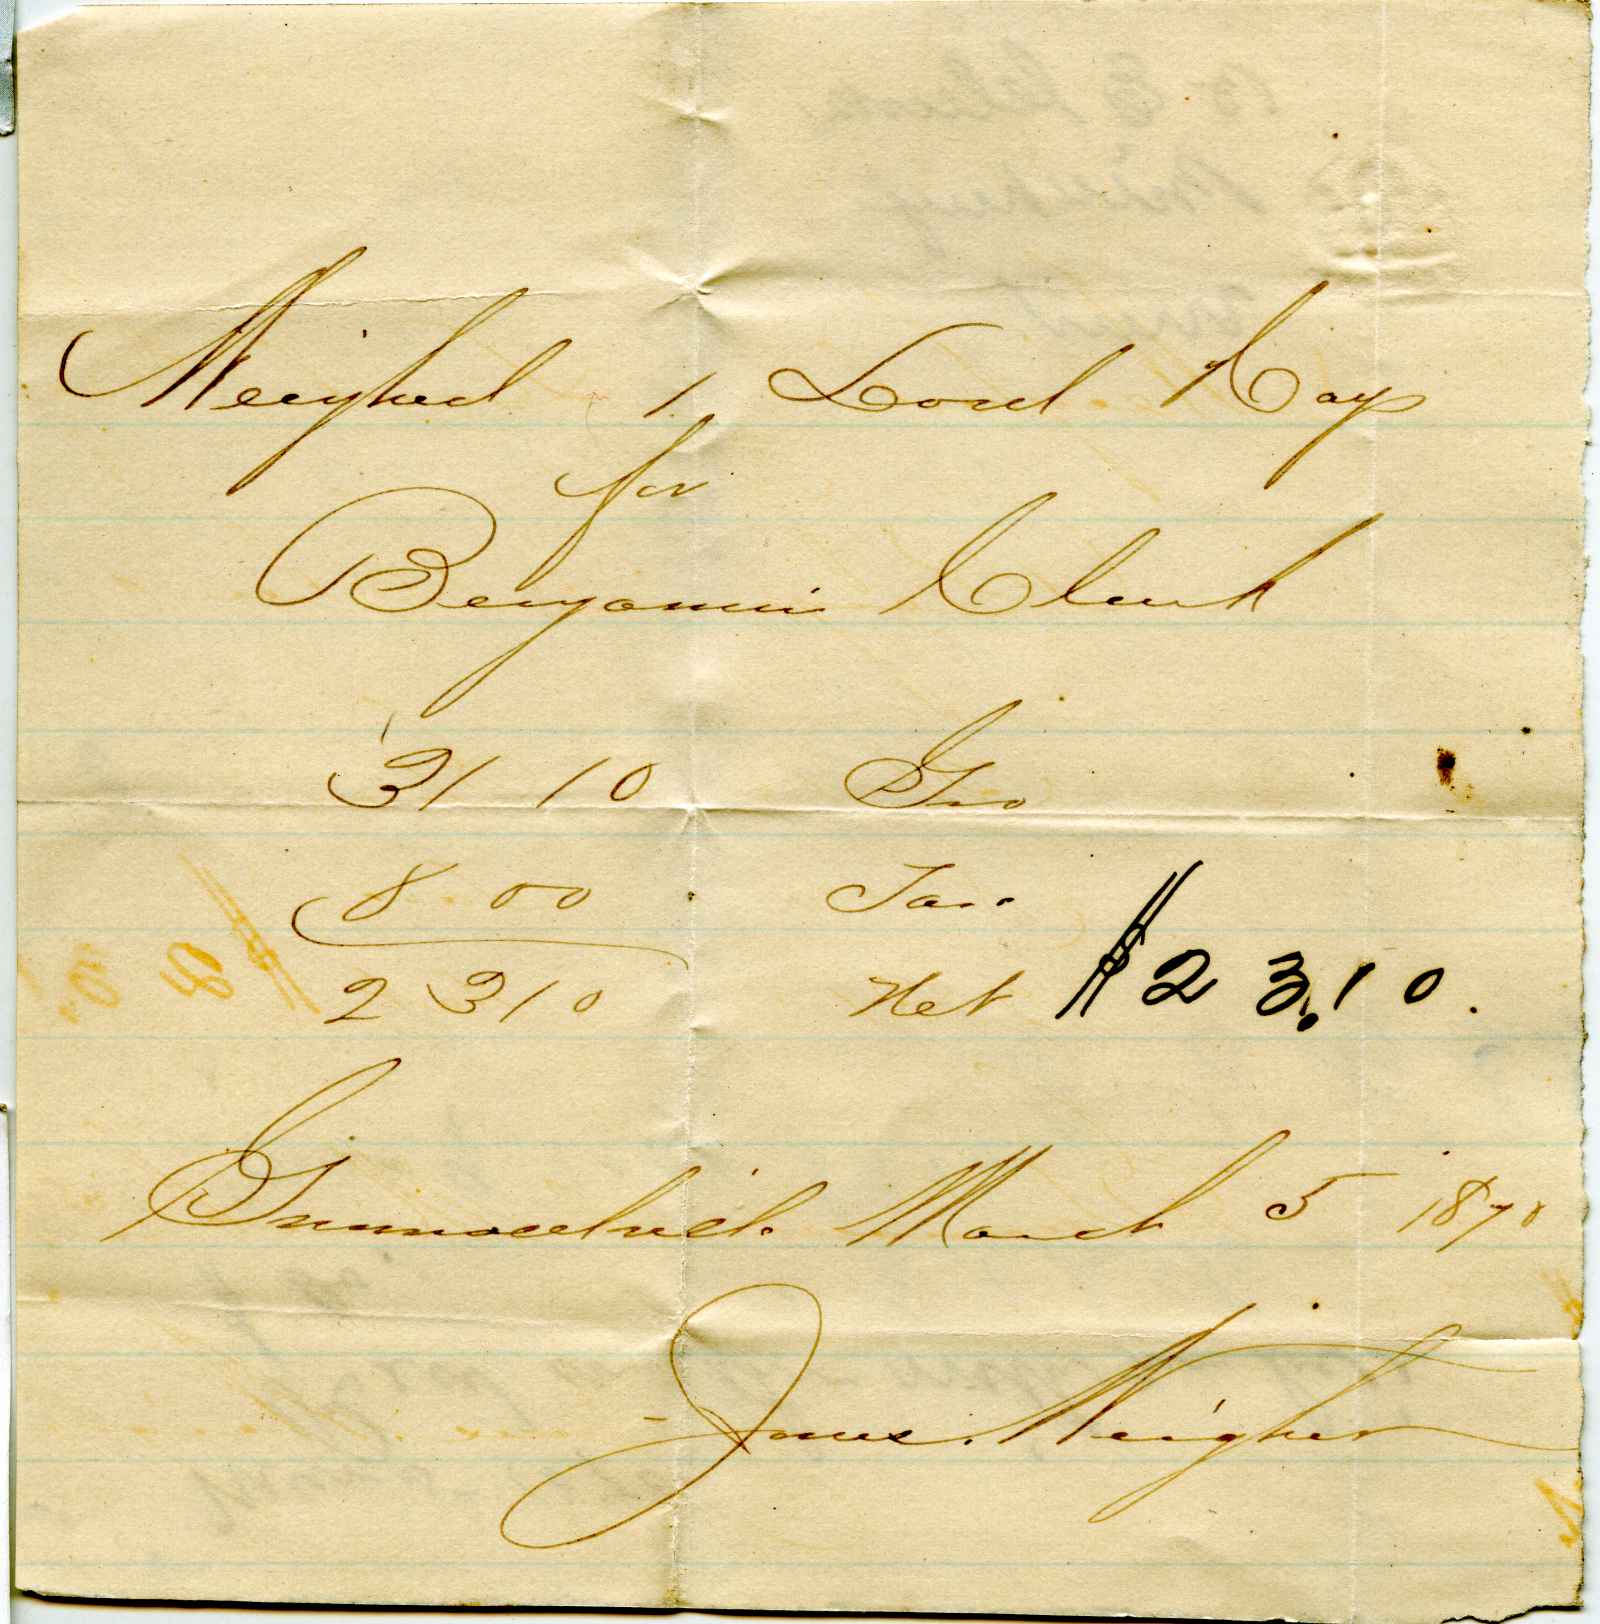 Weighed 1 Load Hay
for
Benjamin Clark
3110 Gro
8.00 Tare
2310 Net $23.10.
March 5 1870
Jones. Weigher